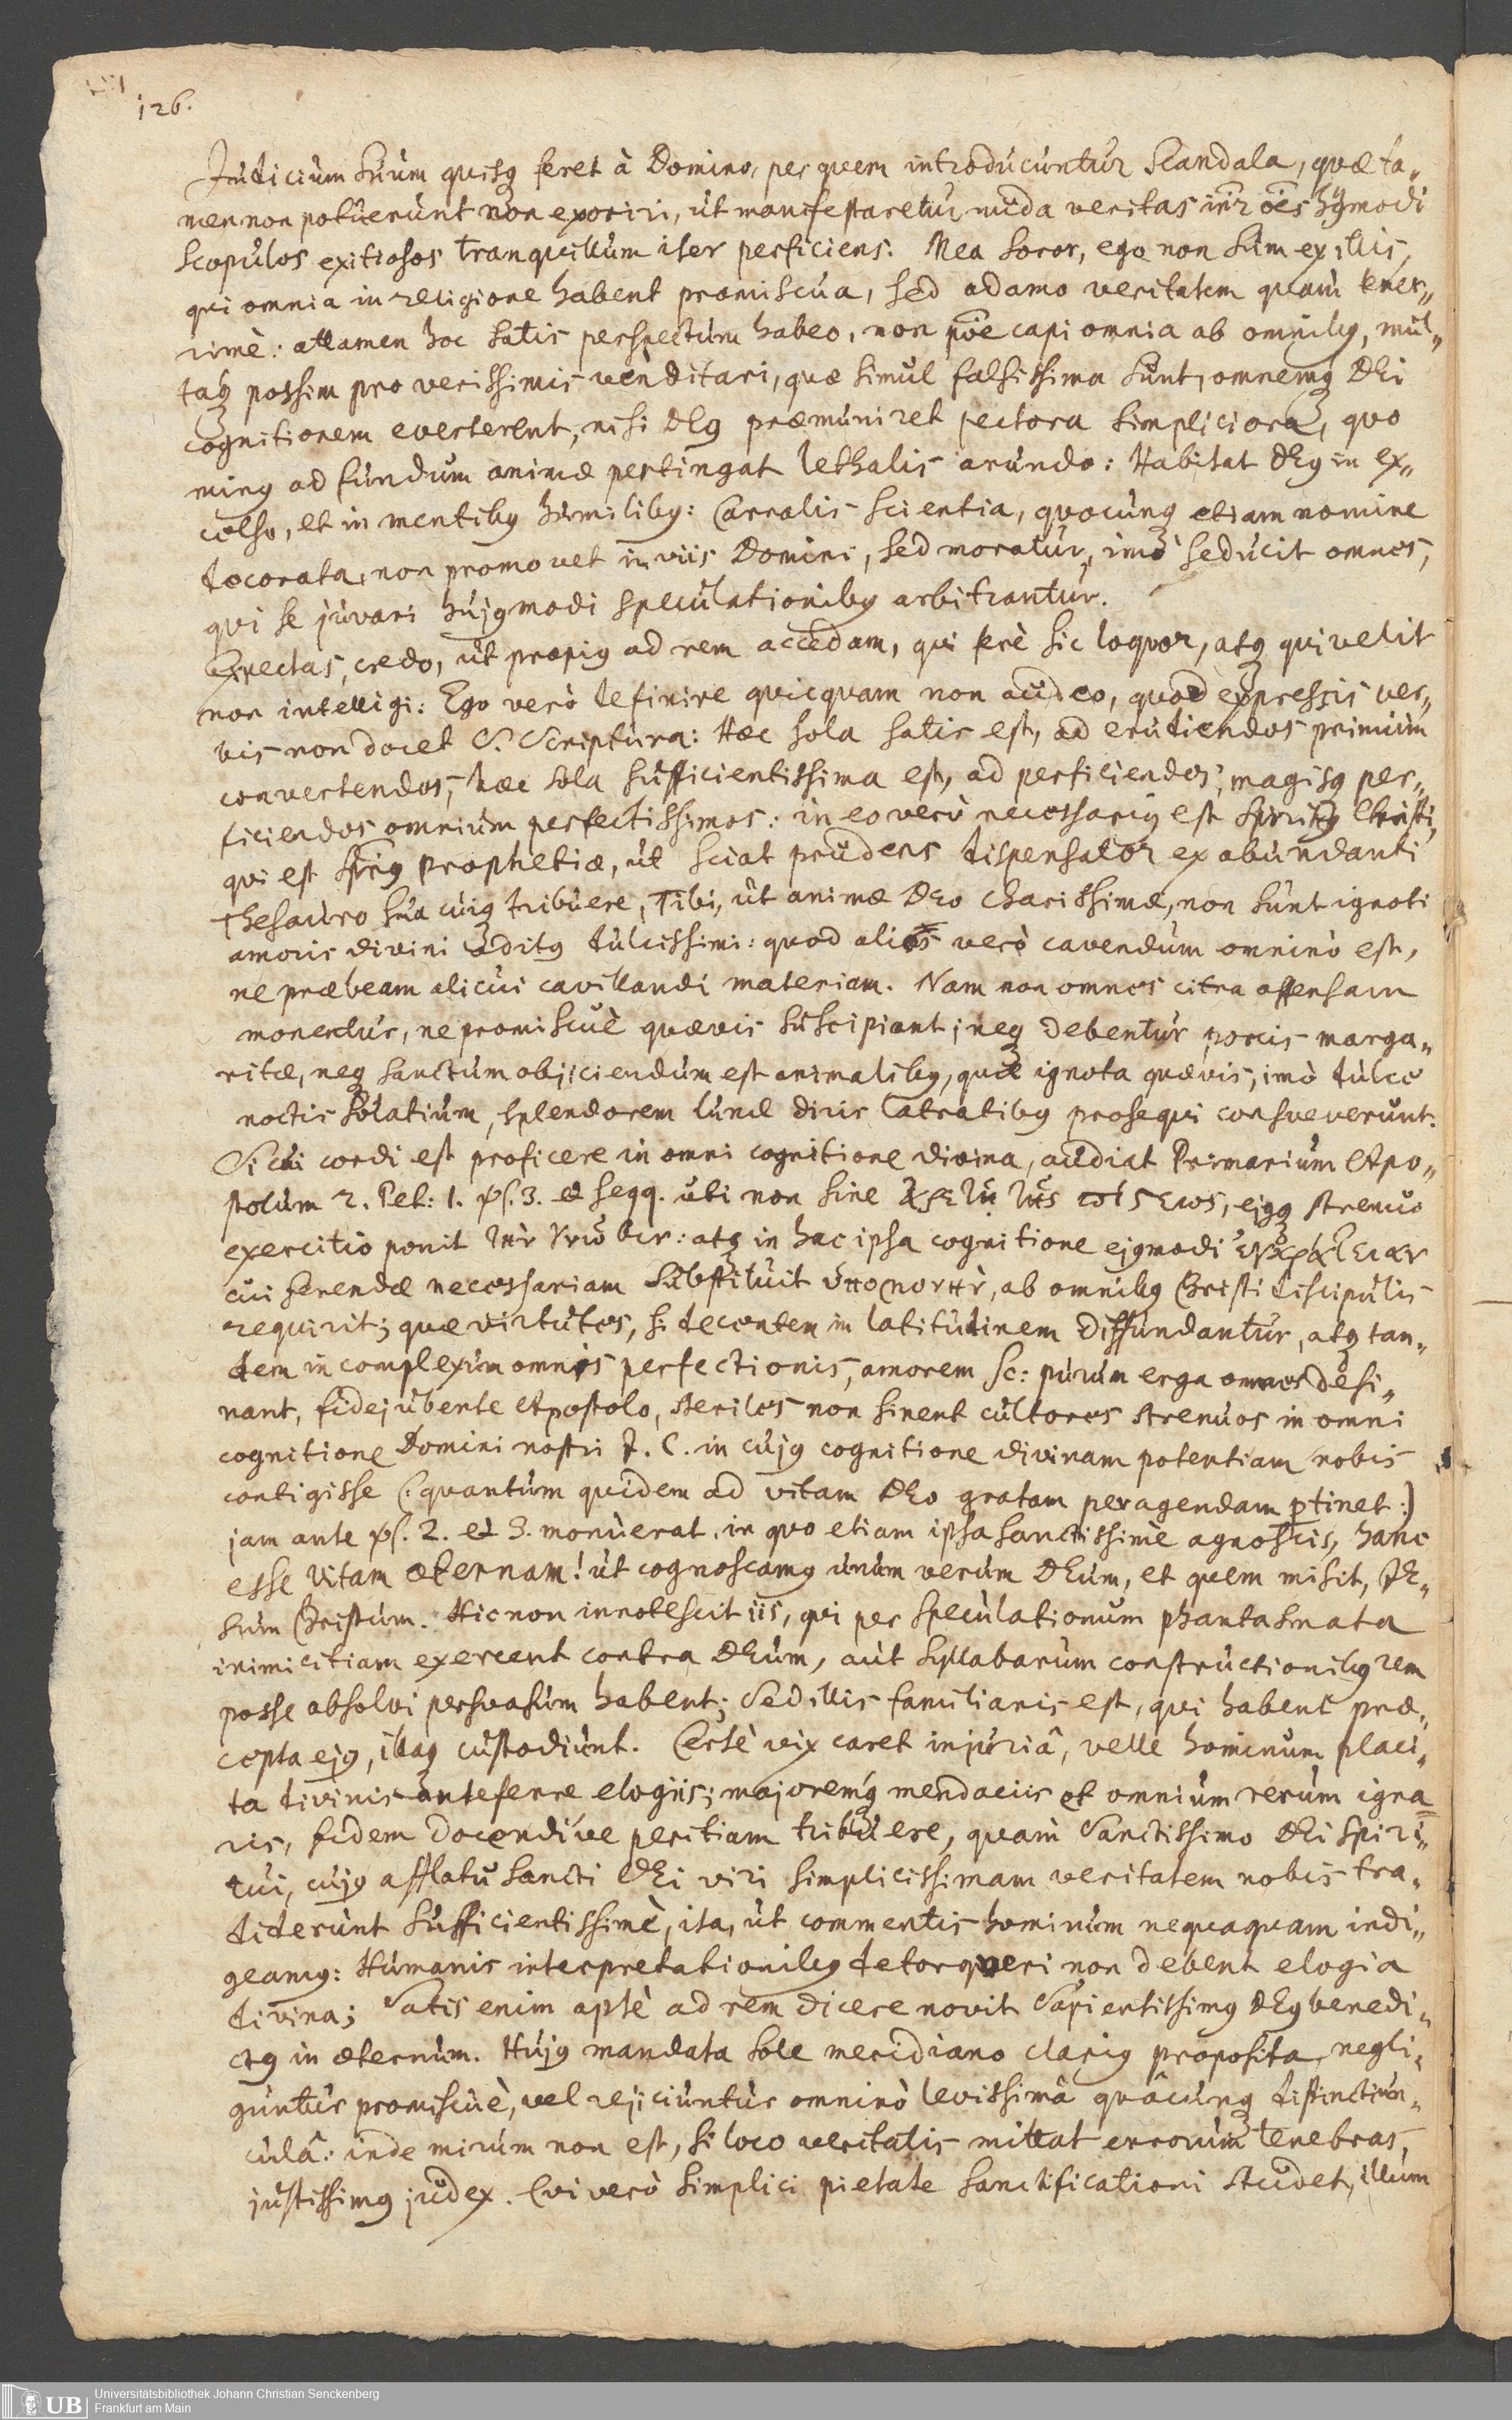 126.
Judicium suum quisq feret à Domino, per quem introducuntur Scandala, quæ ta„
men non potuerunt non exoriri, ut manifestaretur nuda veritas inr oēs hỹmodi
scopulos exitiosos tranquillum iter perficiens. Mea soror, ego non sum ex illis,
qui omnia in religione habent promiscua, sed adamo veritatem quam tener„
rimè: attamen hoc satis perspectum habeo, non poe capi omnia ab omnibq, mul„
taq possim pro verissimis venditari, quæ simul falsissima sunt, omnemq DEi
cognitionem everterent, nisi DEq præmuniret pectora simpliciora, quo
minq ad fundum animæ pertingat lethalis arundo: Habitat DEq in ex„
celso, et in mentibq humilibq: Carnalis scientia, quocunq etiam nomine
decorata, non promovet in viis Domini, sed moratur, imò seducit omnes,
qvi se juvari hujqmodi speculationibq arbitrantur.
Expectas, credo, ut propiq ad rem accedam, qvi ferè sic loqvor, atq qvi velit
non intelligi: Ego verò definire quicquam non audeo, quod expressis ver„
bis non docet S. Scriptura: Hæc sola satis est, ad erudiendos primùm
convertendos, hæc sola sufficientissima est, ad perficiendos, magisq per„
ficiendos omnium perfectissimos: in eo verò necessariq est spiritq Christi,
qvi est spriq Prophetiæ, ut sciat prudens dispensator ex abundanti
thesauro sua cuiq tribuere, Tibi, ut animæ DEo charissimæ, non sunt ignoti
amoris divini aditq dulcissimi: quod alios verò cavendum omninò est,
ne præbeam alicui cavillandi materiam. Nam non omnes citra offensam
monentur, ne promiscuè quævis suscipiant; neq debentur porcis marga„
ritæ, neq sanctum objiciendum est animalibq, quæ ignota quævis, imò dulce
noctis solatium, splendorem lunæ diris latratibq prosequi consveverunt.
Si cui cordi est proficere in omni cognitione divina, audiat Primarium Apo„
stolum 2. Pet: 1. ψ. 3. et seqq. ubi non sine ἀρετῇ τῆς πίστεως, ejqq strenuo
exercitio ponit τὴν γνῶσιν: atq in hac ipsa cognitione ejqmodi ἐγκράτειαν
cui ferendæ necessariam substituit ὑπομονὴν, ab omnibq Christi discipulis
requirit; quæ virtutes, si decentem in latitudinem diffundantur, atq tan„
dem in complexum omnis perfectionis, amorem sc: purum erga omnes desi„
nant, fidejubente Apostolo, steriles non sinent cultores strenuos in omni
cognitione Domini nostri J. C. in cujq cognitione divinam potentiam nobis
contigisse (: quantum quidem ad vitam DEo gratam peragendam ptinet :)
jam ante ψ. 2. et 3. monuerat, in quo etiam ipsa sanctissimè agnoscis, hanc
esse vitam æternam! ut cognoscamq unum verum DEum, et quem misit, JE„
sum Christum. Hic non innotescit iis, qvi per speculationum phantasmata
inimicitiam exercent contra DEum, aut syllabarum constructionibq rem
posse absolvi persvasum habent; Sed illis familiaris est, qvi habent præ„
cepta ejq, itaq custodiunt. Certè vix caret injuriâ, velle hominum placi„
ta divinis anteferre elogiis; majoremq mendaciis et omnium rerum igna=
ris, fidem docendíve peritiam tribuere, quàm Sanctissimo DEi Spiri„
tui, cujq afflatu sancti DEi viri simplicissimam veritatem nobis tra„
diderunt sufficientissimè, ita, ut commentis hominum nequaquam indi„
geamq: Humanis interpretationibq detorqveri non debent elogia
divina; Satis enim aptè ad rem dicere novit Sapientissimq DEq benedi„
ctq in æternum. Hujq mandata sole meridiano clariq proposita, negli„
guntur promiscuè, vel rejiciuntur omninò levissimâ quâcunq distinctiun„
culâ: inde mirum non est, si loco veritatis mittat errorum tenebras,
justissimq judex. Cvi verò simplici pietate sanctificationi studet, illum
Universitätsbibliothek Johann Christian Senckenberg
Frankfurt am Main
UB